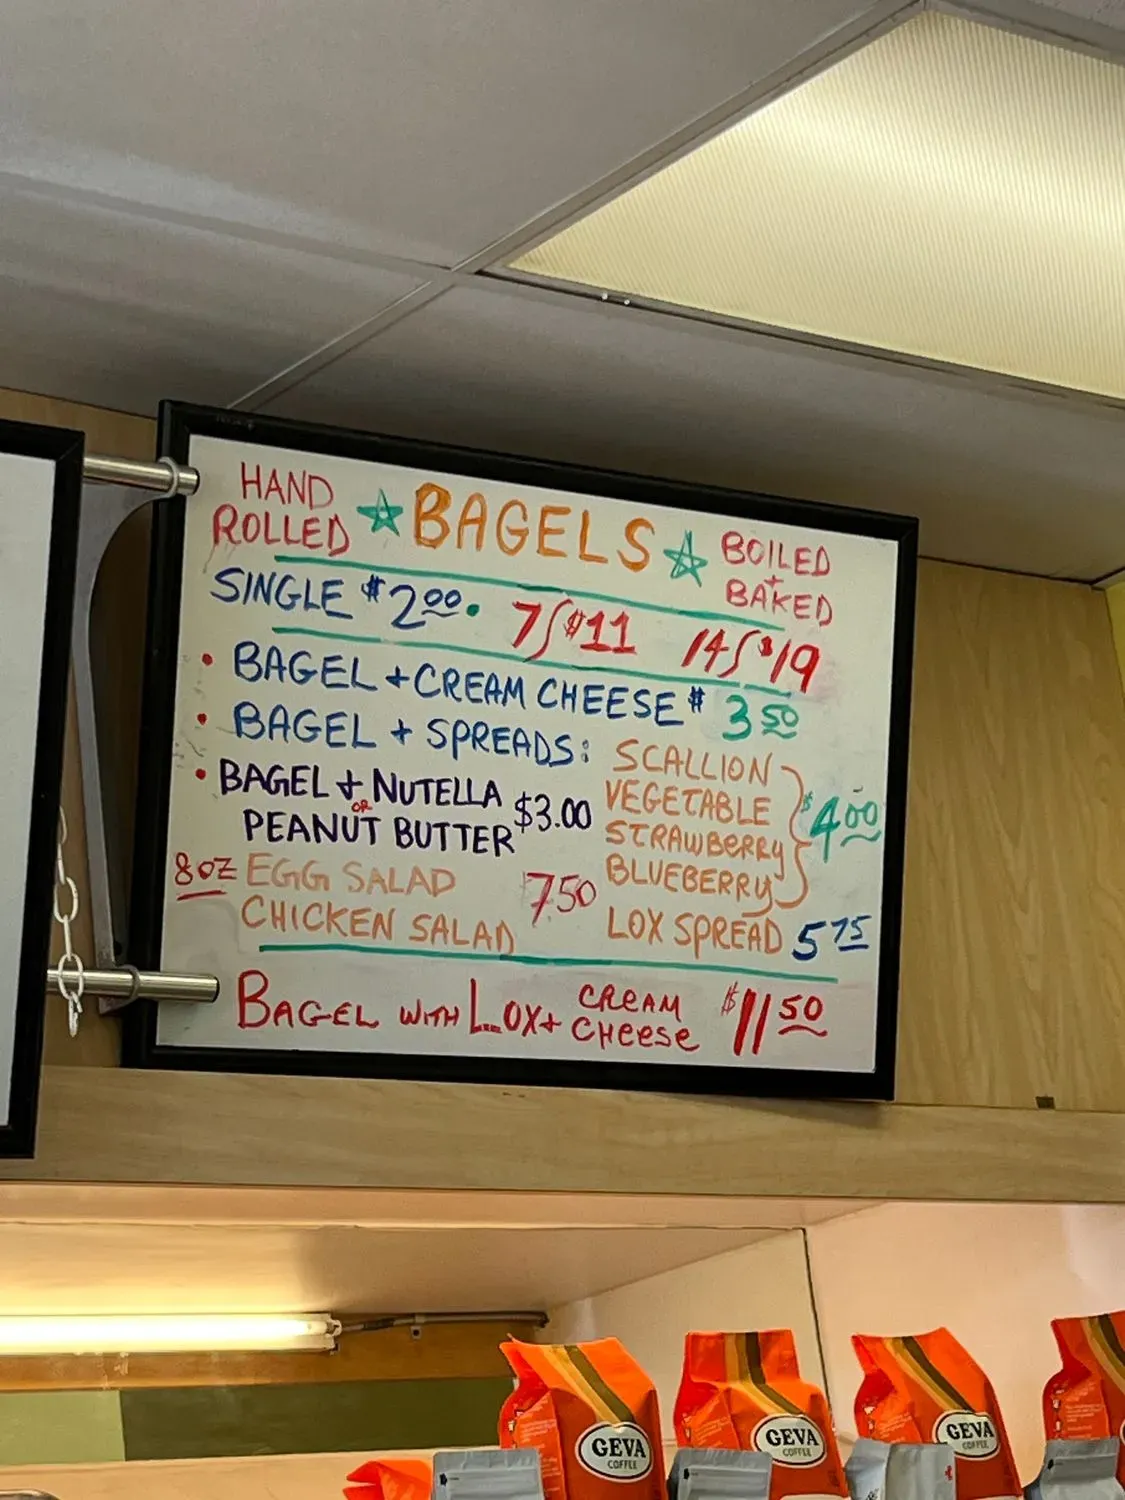 HAND
ROLLED
☆ BAGELS ☆
BOILED
+
BAKED
SINGLE $2.00 • 7/$11 14/$19
• BAGEL + CREAM CHEESE $3.50
• BAGEL + SPREADS:
SCALLION
VEGETABLE
STRAWBERRY
BLUEBERRY
$4.00
LOX SPREAD 5.75
• BAGEL + NUTELLA
OR
PEANUT BUTTER
$3.00
8 OZ EGG SALAD
CHICKEN SALAD
7.50
BAGEL WITH LOX + CREAM CHEESE $11.50
GEVA
COFFEE
GEVA
COFFEE
GEVA
COFFEE